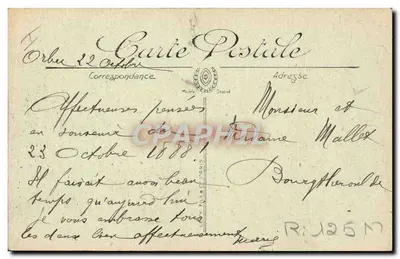 Orbec 22 octobre
Carte Postale
Correspondance
Adresse
Affectueuses pensées
en souvenir du
23 octobre 1888 !
Il faisait aussi beau
temps qu'aujourd'hui
je vous embrasse tous
les deux bien affectueusement
Marie
Monsieur et
Madame Mallet
Bourgtheroulde
CPAPHIL
R: 125 M